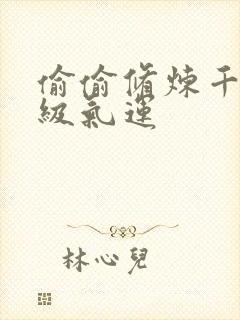 偷偷脩煉千
級氣運
林心兒